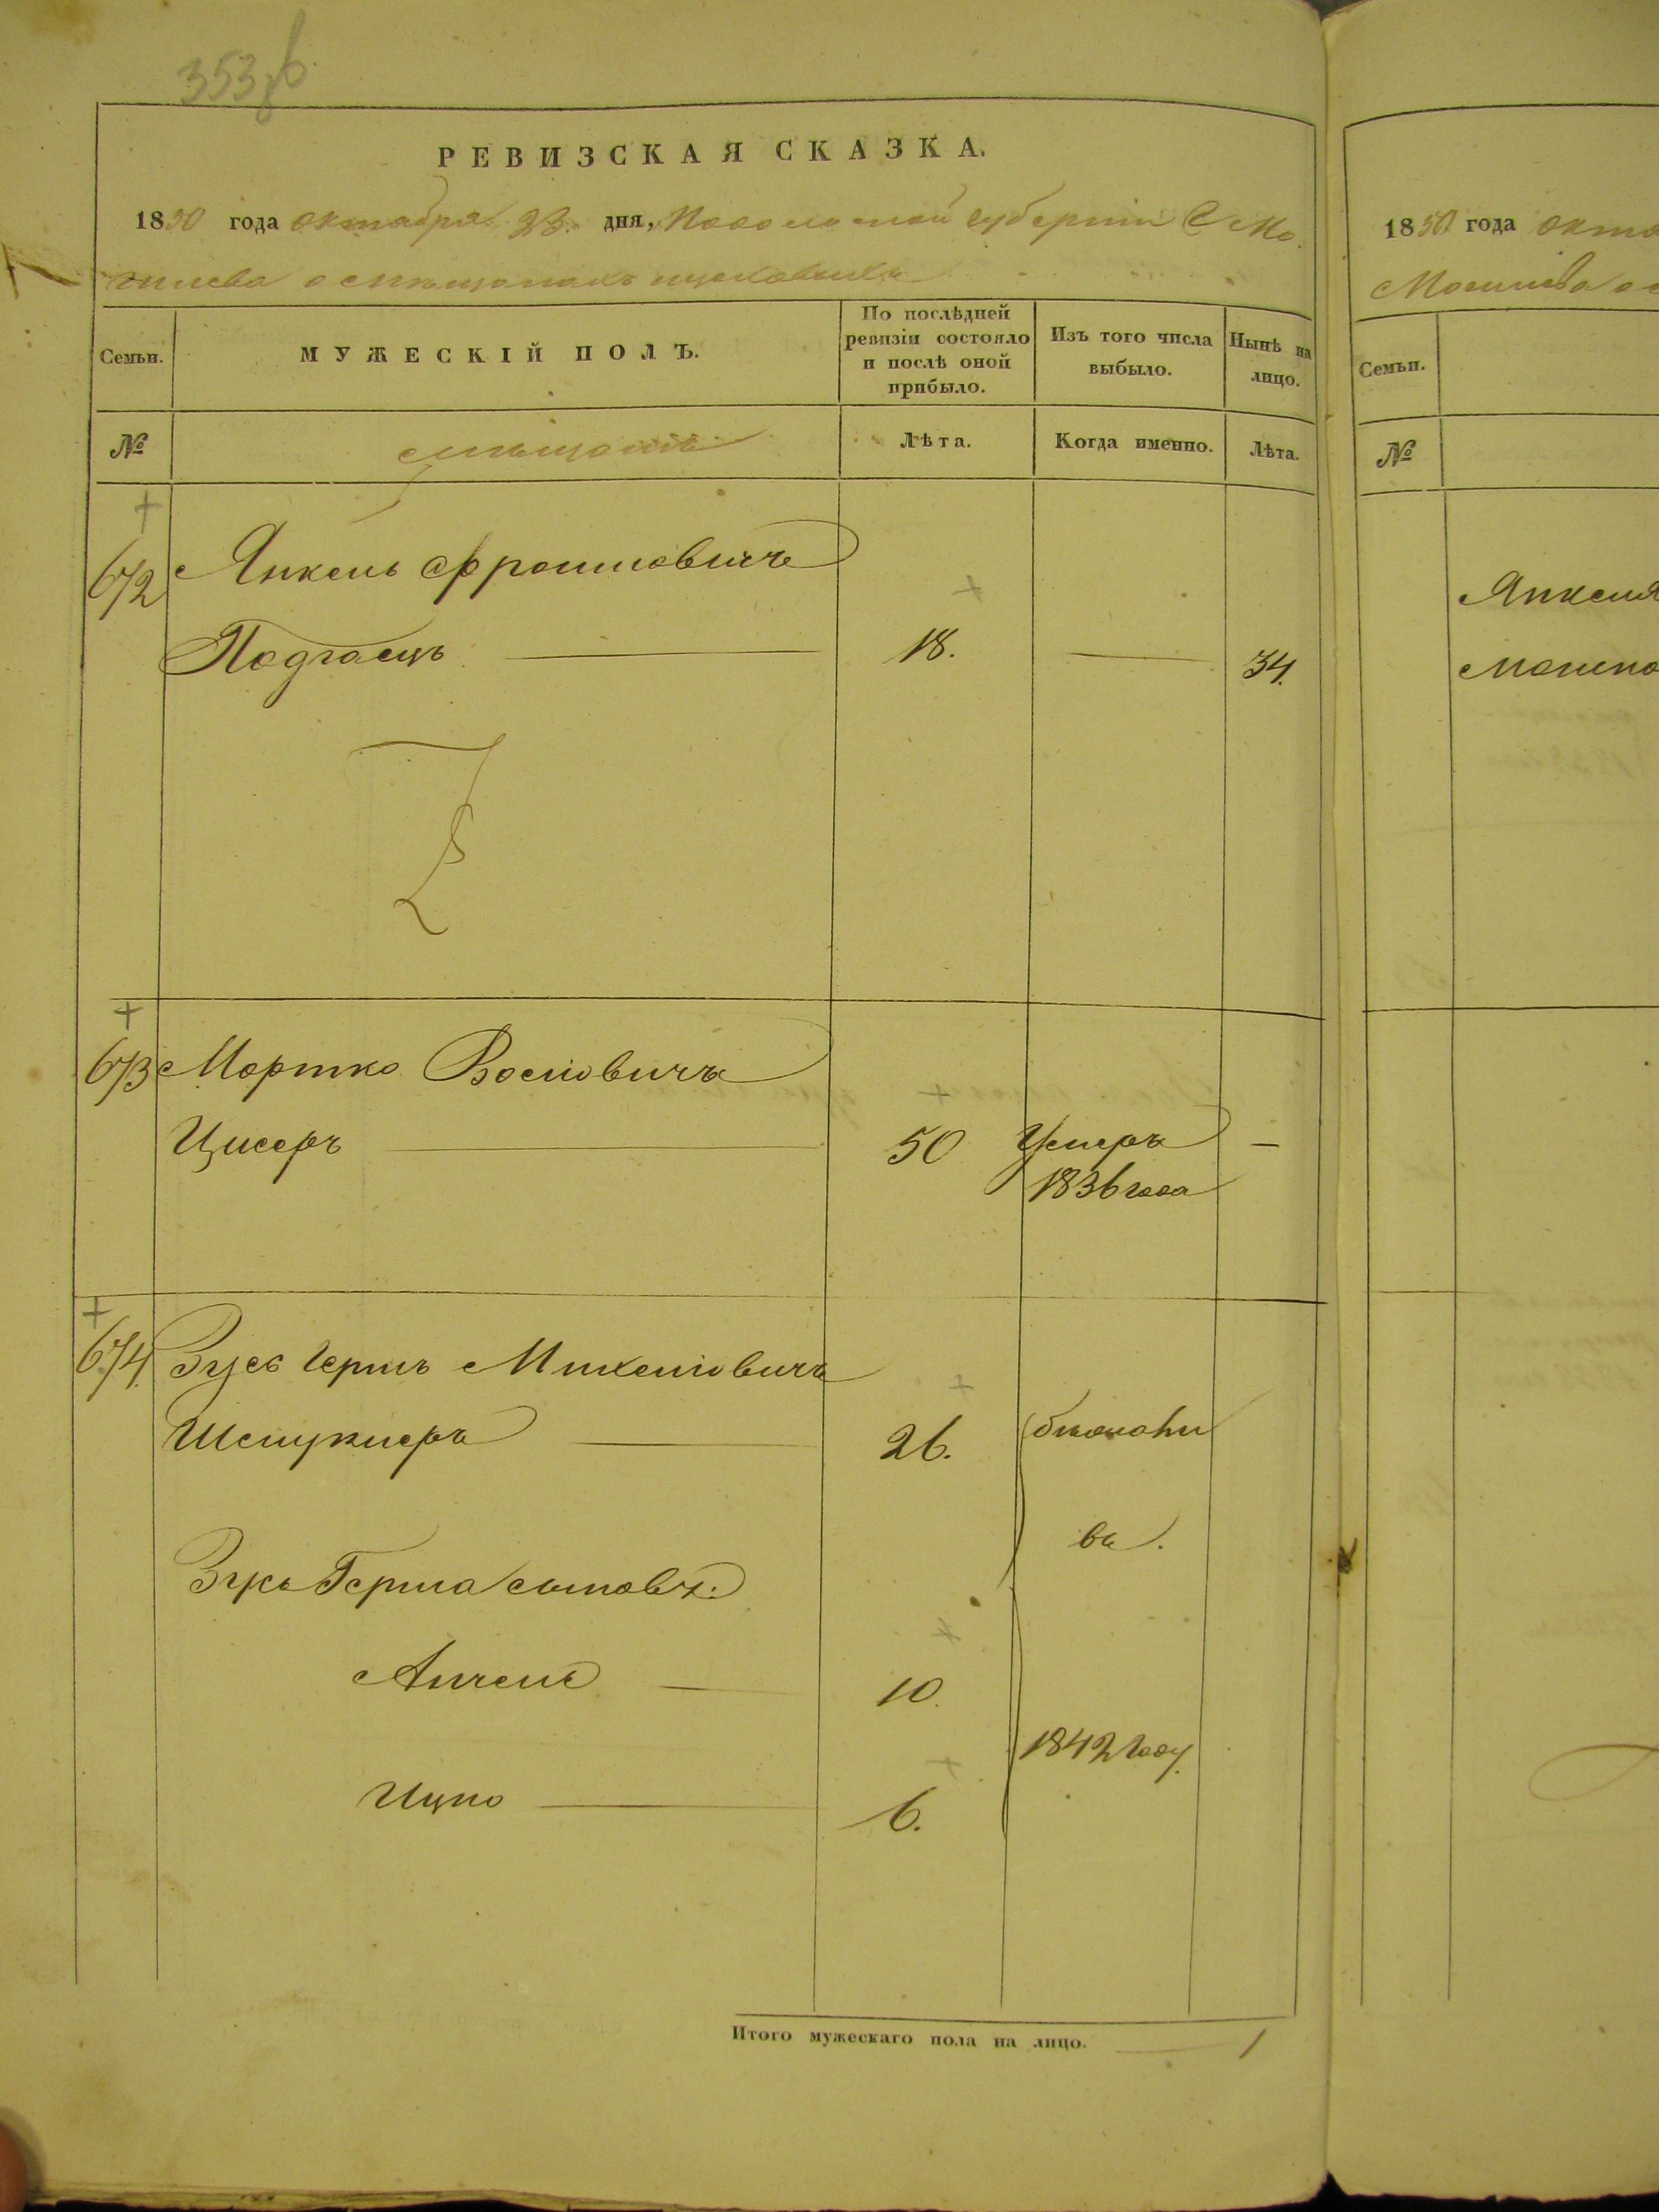 353
РЕВИЗСКАЯ СКАЗКА.
1850 года октября 23 дня, Подольской губерніи Мо
гилева о мѣщанахъ
Семьи.
МУЖЕСКІЙ ПОЛЪ.
По послѣдней ревизіи состояло и послѣ оной прибыло.
Изъ того числа выбыло.
Нынѣ на лицо.
№
мѣщане
Лѣта.
Когда именно.
Лѣта.
672 Янкель Фроимовичъ
Подгаецъ 18. 34.
673 Мортко Іосіовичъ
Цисеръ 50 Умеръ —
1836 года
674 Зусь Гершъ Михеліовичъ
26.
въ
Зусь Герша сыновья:
Анчель 10.
1842 году.
Ицко 6.
Итого мужескаго пола на лицо. 1
1850 года окто
Могилева о
Семьи.
№
Янкеля